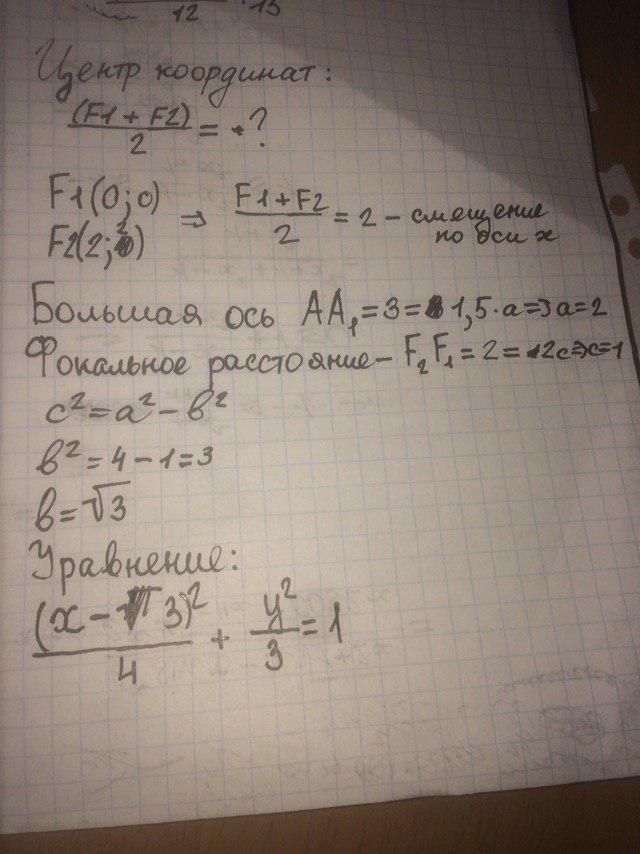 12 · 15
Центр координат:
(F1 + F2)/2 = - ?
F1(0;0)
F2(2; ) ⇒ F1+F2/2 = 2 - смещение по оси x
Большая ось AA₁=3= 1,5·a=>a=2
Фокальное расстояние - F₂F₁=2=2c=>c=1
c²=a²-b²
b²=4-1=3
b=√3
Уравнение:
(x- 3)²/4 + y²/3 = 1